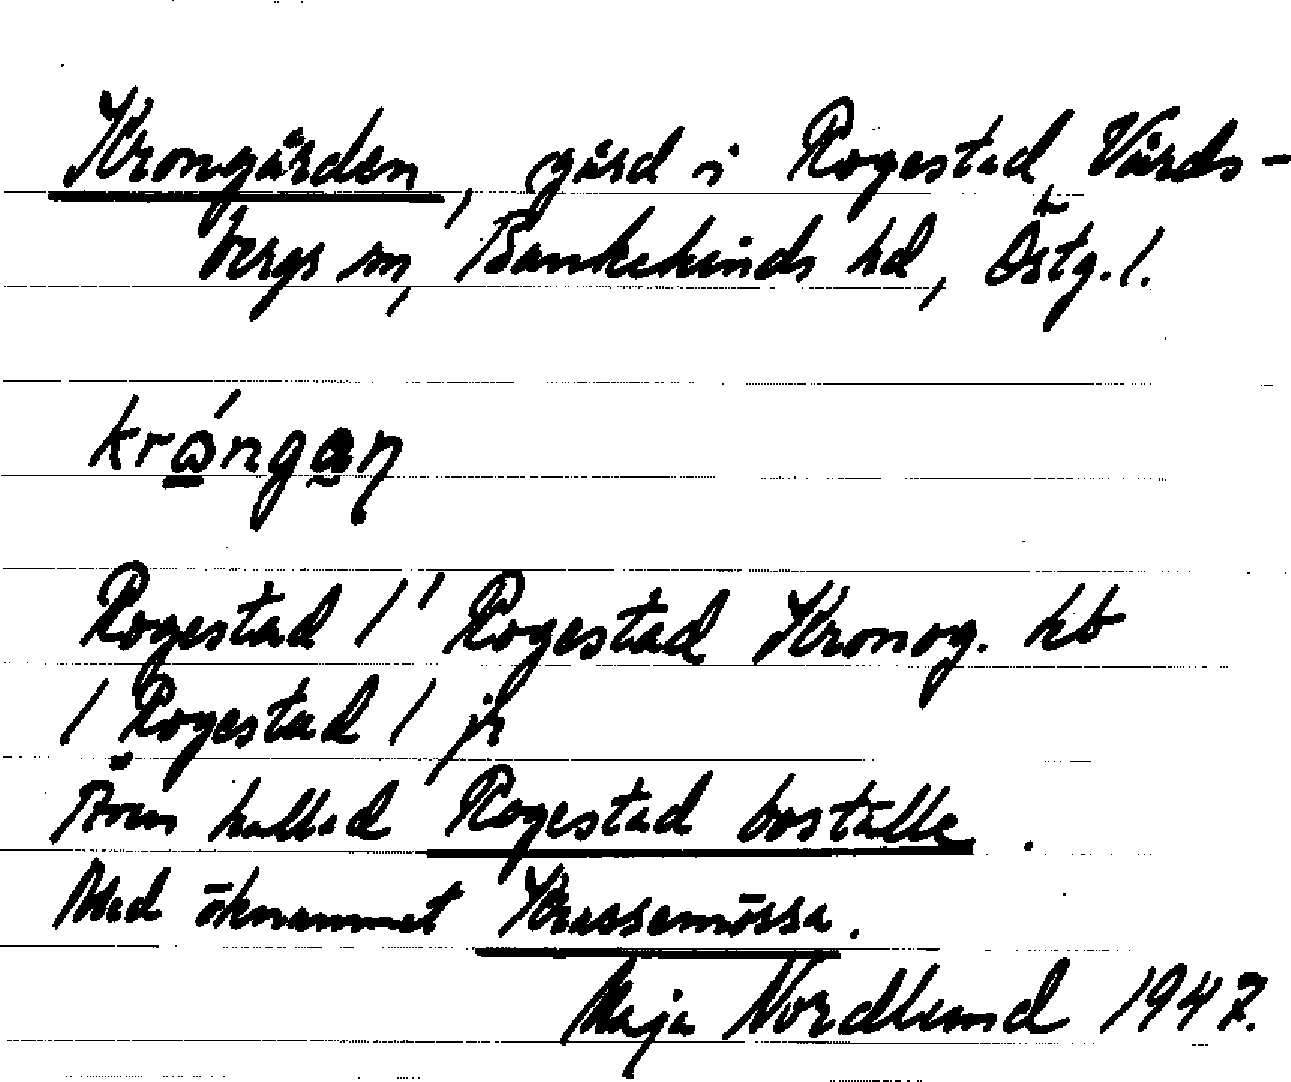 Krongården, gård i Rogestad Vårds-
bergs sn, Bankekinds hd, Östg. l.
krángan
Rogestad 1' Rogestad Kronog. hb
1 Rogestad 1 jr
Även kallad Rogestad boställe.
Med öknamnet Krassemössa.
Maja Nordlund 1947.